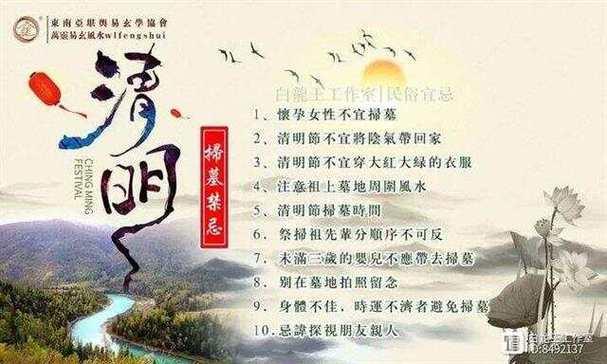 東南亞堪輿易玄學協會
萬靈易玄風水wlfengshui
清明
CHING MING
FESTIVAL
掃墓禁忌
白龍王工作室|民俗宜忌
1、懷孕女性不宜掃墓
2、清明節不宜將陰氣帶回家
3、清明節不宜穿大紅大綠的衣服
4、注意祖上墓地周圍風水
5、清明節掃墓時間
6、祭掃祖先輩分順序不可反
7、未滿三歲的嬰兒不應帶去掃墓
8、别在墓地拍照留念
9、身體不佳，時運不濟者避免掃墓
10.忌諱探視朋友親人
白龍王工作室
ID:8492137